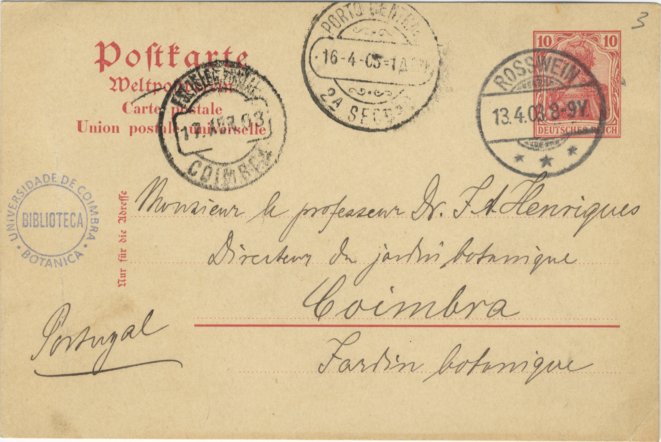 3
Postkarte
Weltpostverein
Carte postale
Union postale universelle
PORTO CENTRAL
16-4-03=1A
2A SECÇÃO
10 10
DEUTSCHES REICH
ROSSWEIN
13.4.03.8-9V.
17 ABR 03
COIMBRA
UNIVERSIDADE DE COIMBRA
BIBLIOTECA
BOTANICA
Nur für die Adresse
Monsieur le professeur Dr. J. A. Henriques
Directeur du jardin botanique
Coimbra
Portugal
Jardin botanique